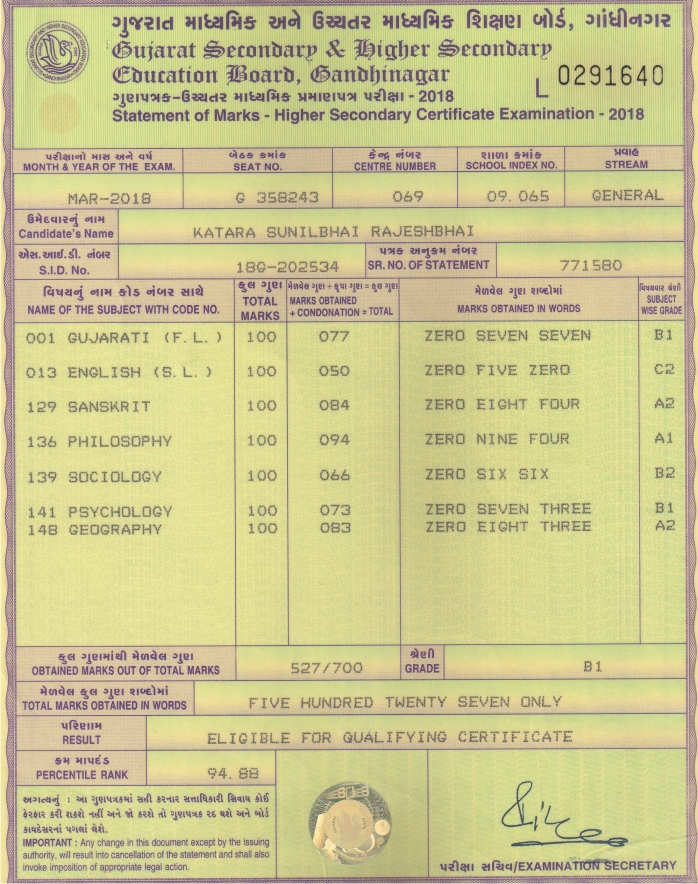 ગુજરાત માધ્યમિક અને ઉચ્ચતર માધ્યમિક શિક્ષણ બોર્ડ, ગાંધીનગર
Gujarat Secondary & Higher Secondary
Education Board, Gandhinagar
L 0291640
ગુણપત્રક-ઉચ્ચતર માધ્યમિક પ્રમાણપત્ર પરીક્ષા - 2018
Statement of Marks - Higher Secondary Certificate Examination - 2018
પરીક્ષાનો માસ અને વર્ષ બેઠક ક્રમાંક કેન્દ્ર નંબર શાળા ક્રમાંક પ્રવાહ
MONTH & YEAR OF THE EXAM. SEAT NO. CENTRE NUMBER SCHOOL INDEX NO. STREAM
MAR-2018 G 358243 069 09.065 GENERAL
ઉમેદવારનું નામ
Candidate's Name KATARA SUNILBHAI RAJESHBHAI
એસ.આઈ.ડી. નંબર પત્રક અનુક્રમ નંબર
S.I.D. No. 18G-202534 SR. NO. OF STATEMENT 771580
વિષયનું નામ કોડ નંબર સાથે કુલ ગુણ મેળવેલ ગુણ + કૃપા ગુણ = કુલ ગુણ મેળવેલ ગુણ શબ્દોમાં વિષયવાર શ્રેણી
NAME OF THE SUBJECT WITH CODE NO. TOTAL MARKS MARKS OBTAINED + CONDONATION = TOTAL MARKS OBTAINED IN WORDS SUBJECT WISE GRADE
001 GUJARATI (F.L.) 100 077 ZERO SEVEN SEVEN B1
013 ENGLISH (S.L.) 100 050 ZERO FIVE ZERO C2
129 SANSKRIT 100 084 ZERO EIGHT FOUR A2
136 PHILOSOPHY 100 094 ZERO NINE FOUR A1
139 SOCIOLOGY 100 066 ZERO SIX SIX B2
141 PSYCHOLOGY 100 073 ZERO SEVEN THREE B1
148 GEOGRAPHY 100 083 ZERO EIGHT THREE A2
કુલ ગુણમાંથી મેળવેલ ગુણ શ્રેણી
OBTAINED MARKS OUT OF TOTAL MARKS 527/700 GRADE B1
મેળવેલ કુલ ગુણ શબ્દોમાં
TOTAL MARKS OBTAINED IN WORDS FIVE HUNDRED TWENTY SEVEN ONLY
પરિણામ
RESULT ELIGIBLE FOR QUALIFYING CERTIFICATE
ક્રમ માપદંડ
PERCENTILE RANK 94.88
અગત્યનું : આ ગુણપત્રકમાં સહી કરનાર સત્તાધિકારી સિવાય કોઈ
ફેરફાર કરી શકશે નહીં અને જો કરશે તો ગુણપત્રક રદ થશે અને બોર્ડ
કાયદેસરનાં પગલાં લેશે.
IMPORTANT : Any change in this document except by the issuing
authority, will result into cancellation of the statement and shall also
invoke imposition of appropriate legal action.
પરીક્ષા સચિવ/EXAMINATION SECRETARY